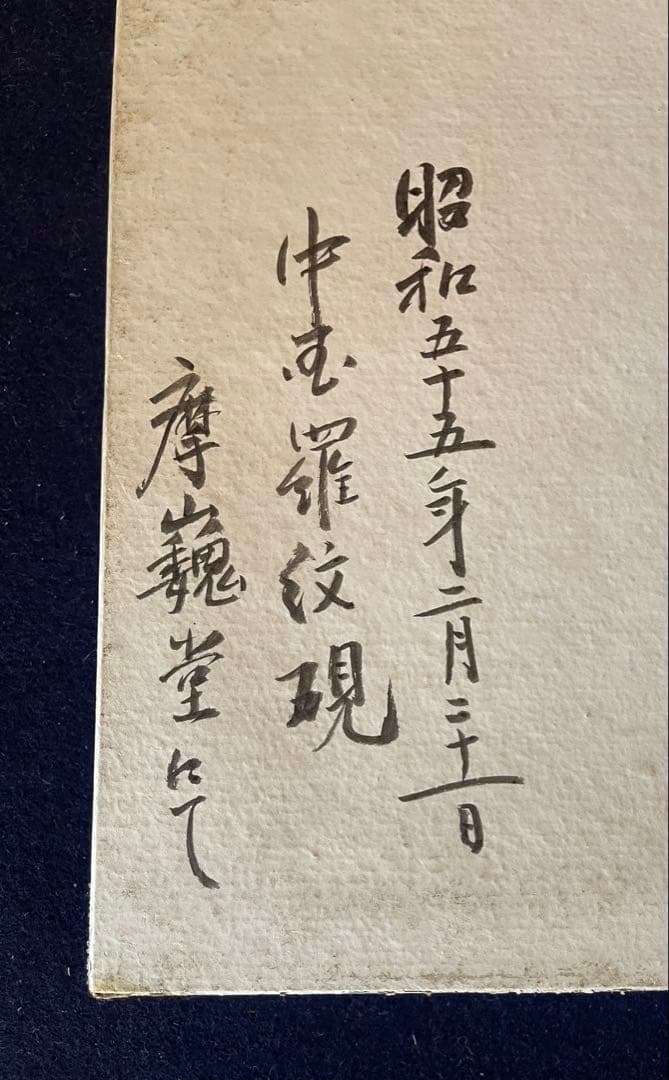 昭和五十五年二月二十一日
中国羅紋硯
摩巍堂にて